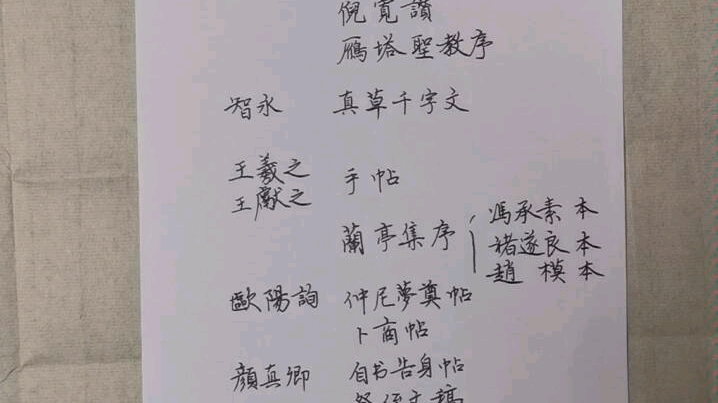 倪寬讚
雁塔聖教序
智永 真草千字文
王羲之 手帖
王獻之
蘭亭集序 馮承素本
褚遂良本
趙模本
歐陽詢 仲尼夢奠帖
卜商帖
顏真卿 自书告身帖
祭侄文稿